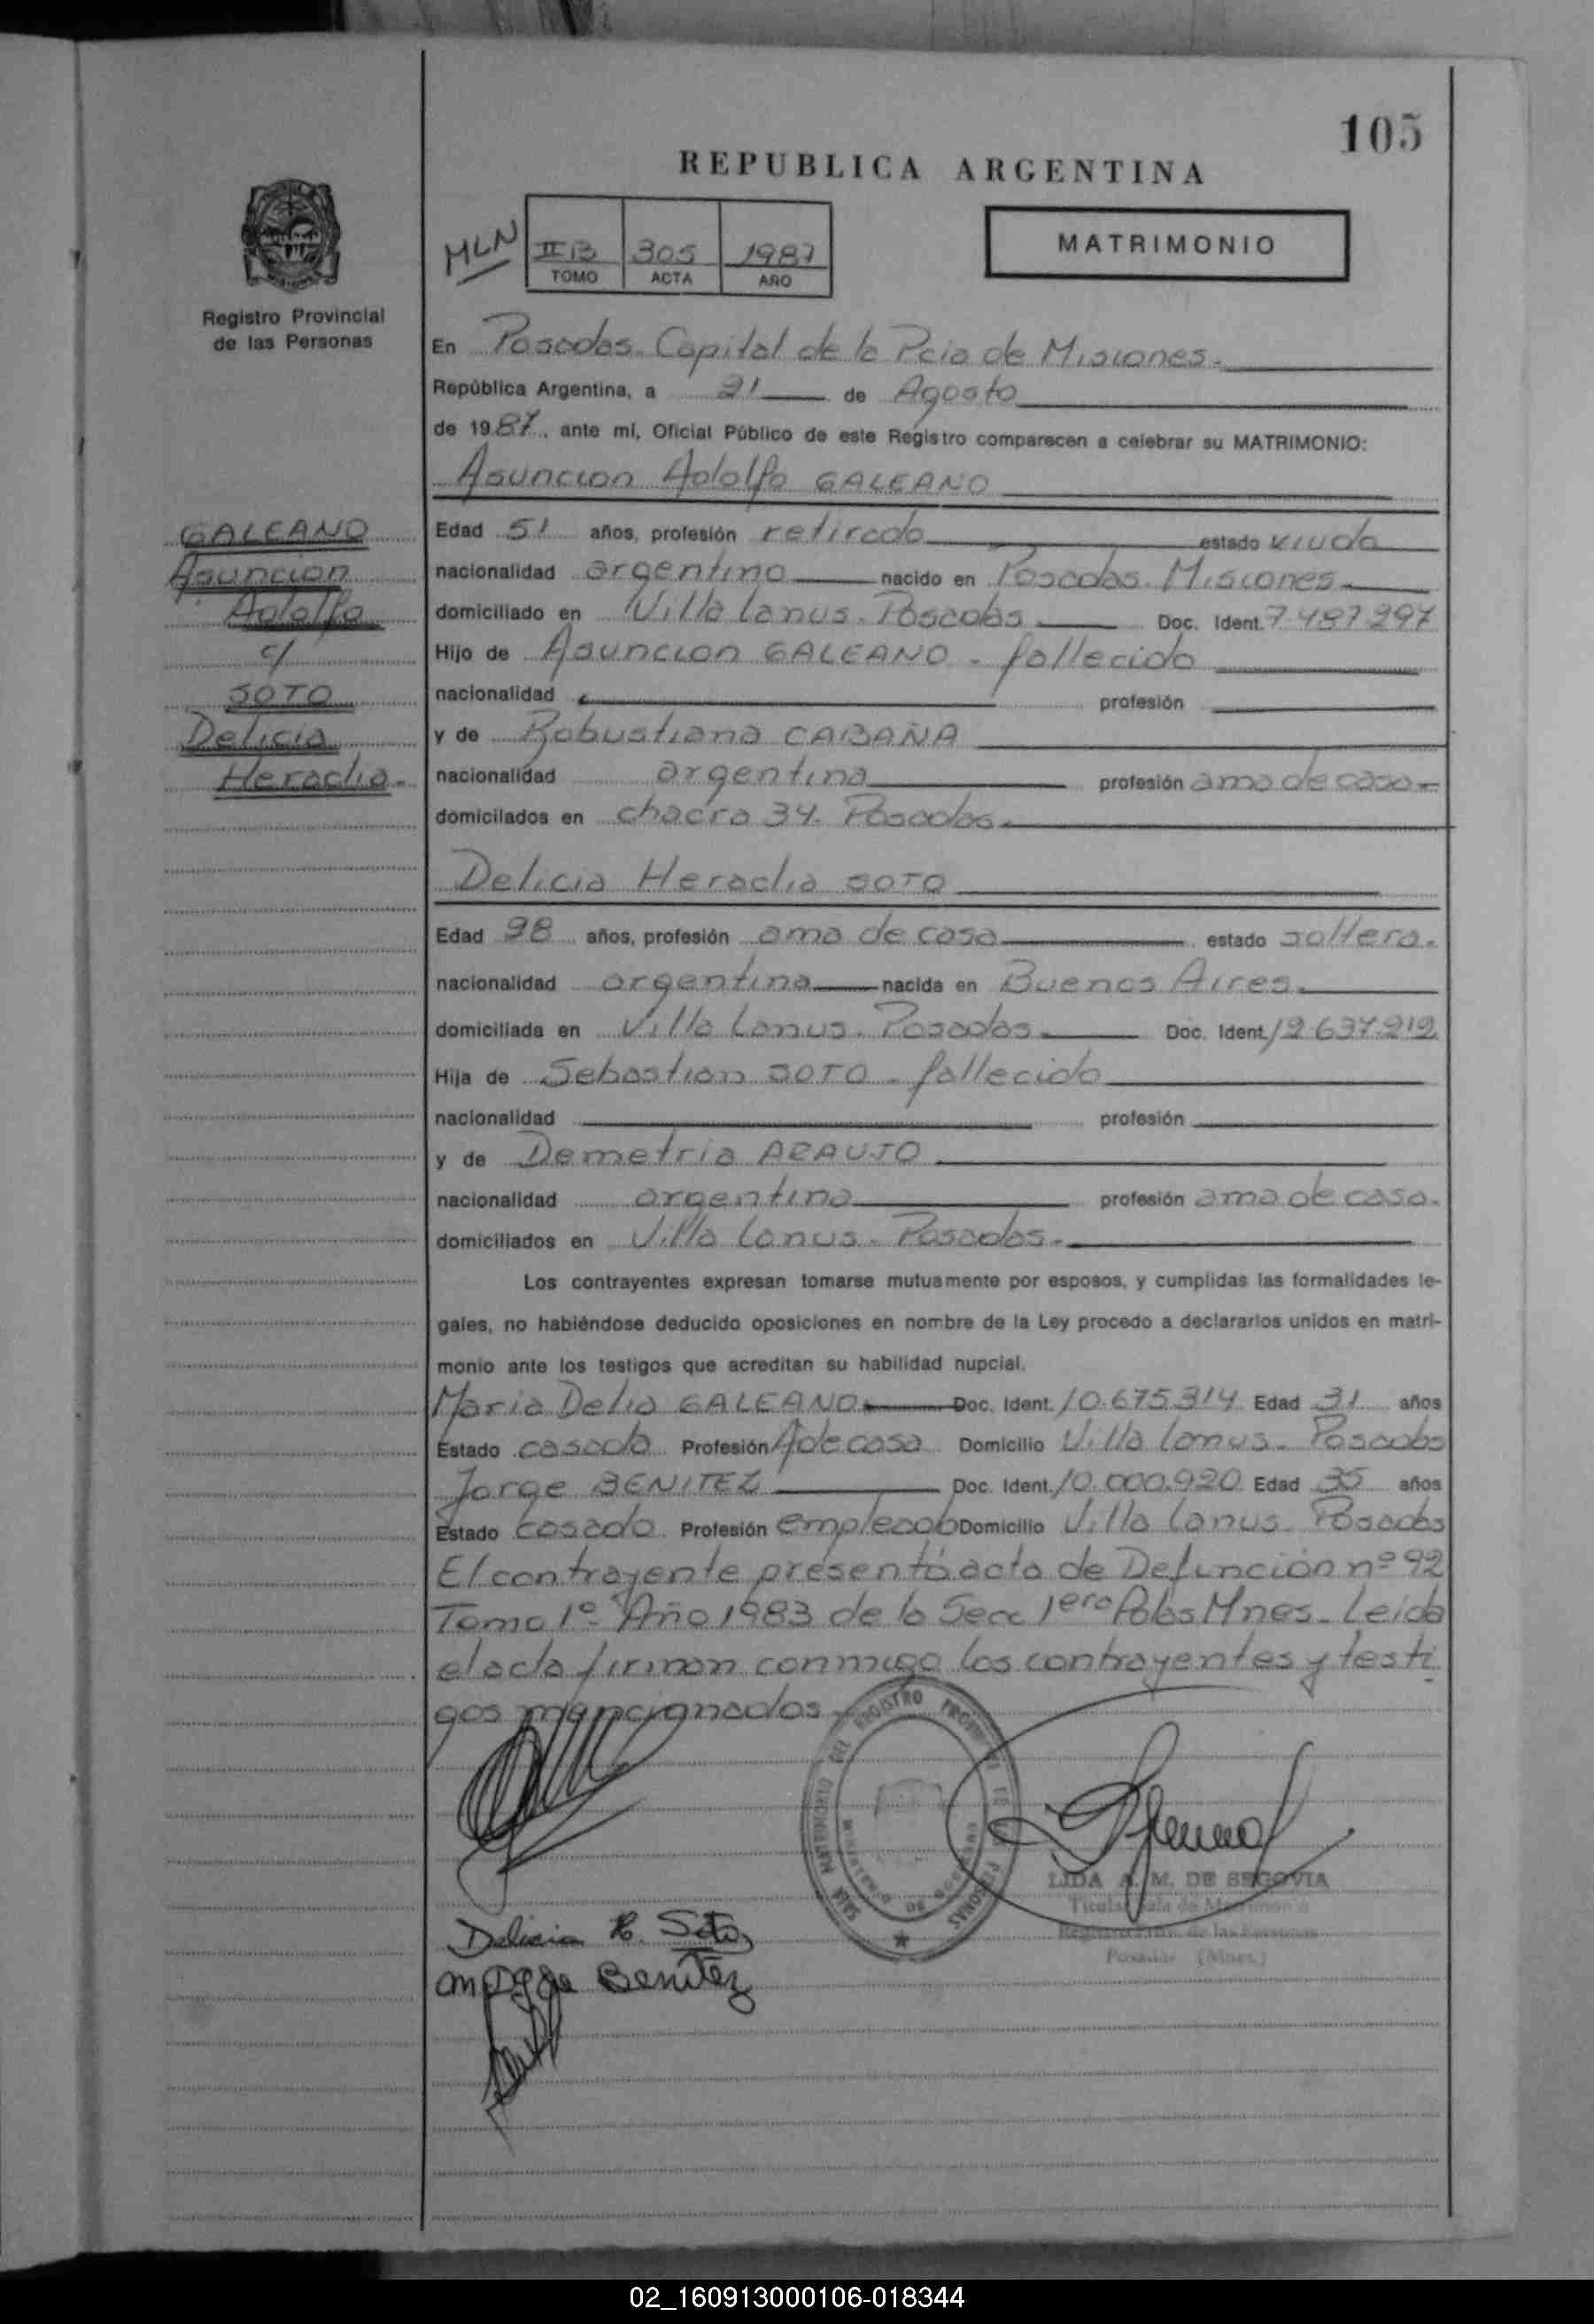 105
REPUBLICA ARGENTINA
MLN
IIB 305 1987
TOMO ACTA AÑO
MATRIMONIO
Registro Provincial
de las Personas
En Posadas. Capital de la Pcia de Misiones.
República Argentina, a 21 de Agosto
de 1987, ante mí, Oficial Público de este Registro comparecen a celebrar su MATRIMONIO:
Asuncion Adolfo GALEANO
GALEANO
Asuncion
Adolfo
c/
SOTO
Delicia
Heraclia.
Edad 51 años, profesión retirado estado viudo
nacionalidad argentino nacido en Posadas. Misiones.
domiciliado en Villa Lanus. Posadas Doc. Ident. 7.487.297
Hijo de Asuncion GALEANO - fallecido
nacionalidad profesión
y de Robustiana CABAÑA
nacionalidad argentina profesión ama de casa.
domicilados en chacra 34. Posadas.
Delicia Heraclia SOTO
Edad 28 años, profesión ama de casa estado soltera.
nacionalidad argentina nacida en Buenos Aires.
domiciliada en Villa Lanus. Posadas. Doc. Ident. 12.637.212
Hija de Sebastian SOTO - fallecido
nacionalidad profesión
y de Demetria ARAUJO
nacionalidad argentina profesión ama de casa.
domiciliados en Villa Lanus - Posadas.
Los contrayentes expresan tomarse mutuamente por esposos, y cumplidas las formalidades le-
gales, no habiéndose deducido oposiciones en nombre de la Ley procedo a declararlos unidos en matri-
monio ante los testigos que acreditan su habilidad nupcial.
Maria Delia GALEANO Doc. Ident. 10.675.314 Edad 31 años
Estado casada Profesión A de casa Domicilio Villa Lanus. Posadas
Jorge BENITEZ Doc. Ident. 10.000.920 Edad 35 años
Estado casado Profesión empleado Domicilio Villa Lanus. Posadas
El contrayente presentó acta de Defunción nº 92
Tomo 1º Año 1983 de la Secc 1era Pdas Mnes. Leida
el acta firman conmigo los contrayentes y testi
gos mencionados
LIDA A. M. DE SEGOVIA
Titular Sala de Matrimonio
Posadas (Mnes.)
Delicia H. Soto
Benítez
02_160913000106-018344